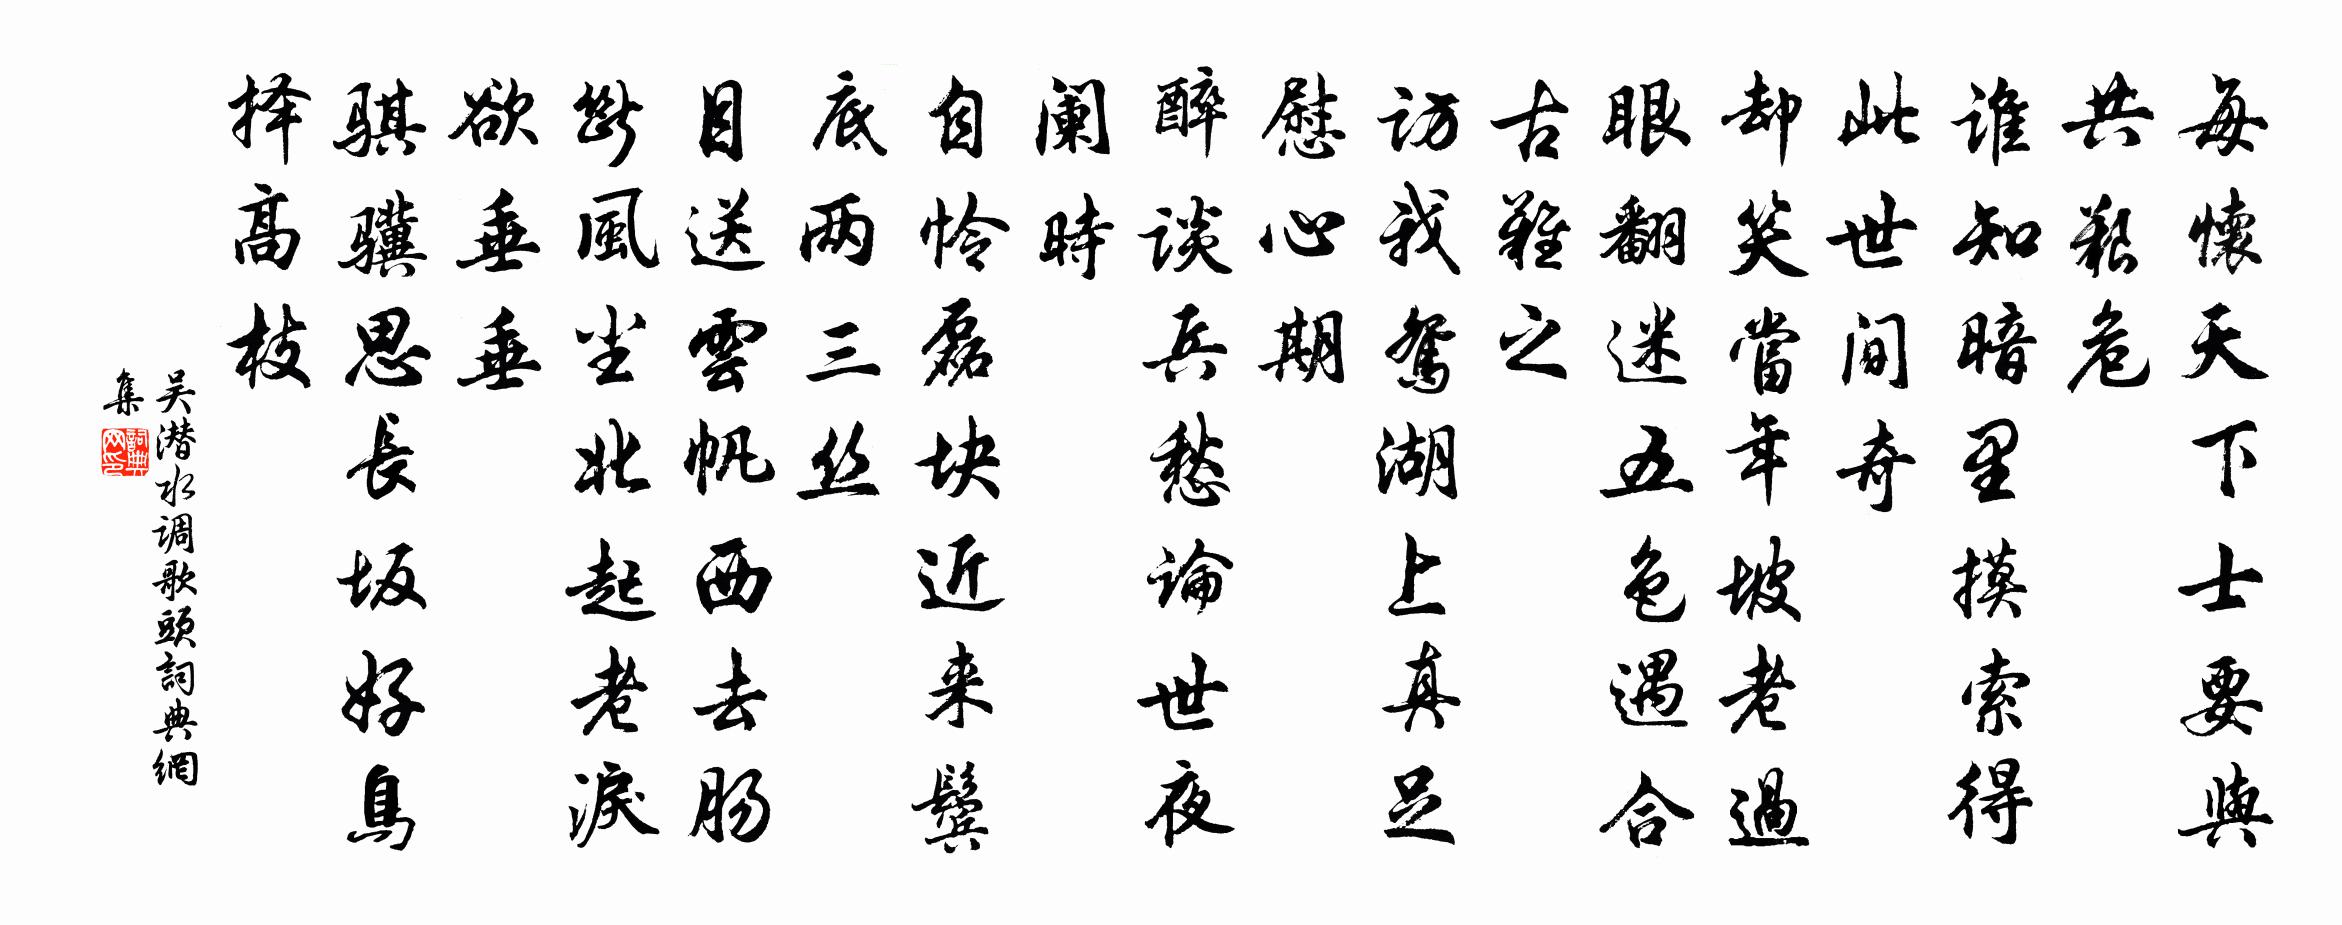 每懷天下士要與
共艱危
谁知暗里摸索得
此世间奇
却笑當年坡老過
眼翻迷五色遇合
古難之
访我鸳湖上真足
慰心期
醉谈兵愁論世夜
阑時
自怜磊块近来鬓
底两三丝
目送雲帆西去肠
斷風尘北起老淚
欲垂垂
骐骥思長坂好鳥
择高枝
吴潜水调歌頭詞典網
集
詞典
网印